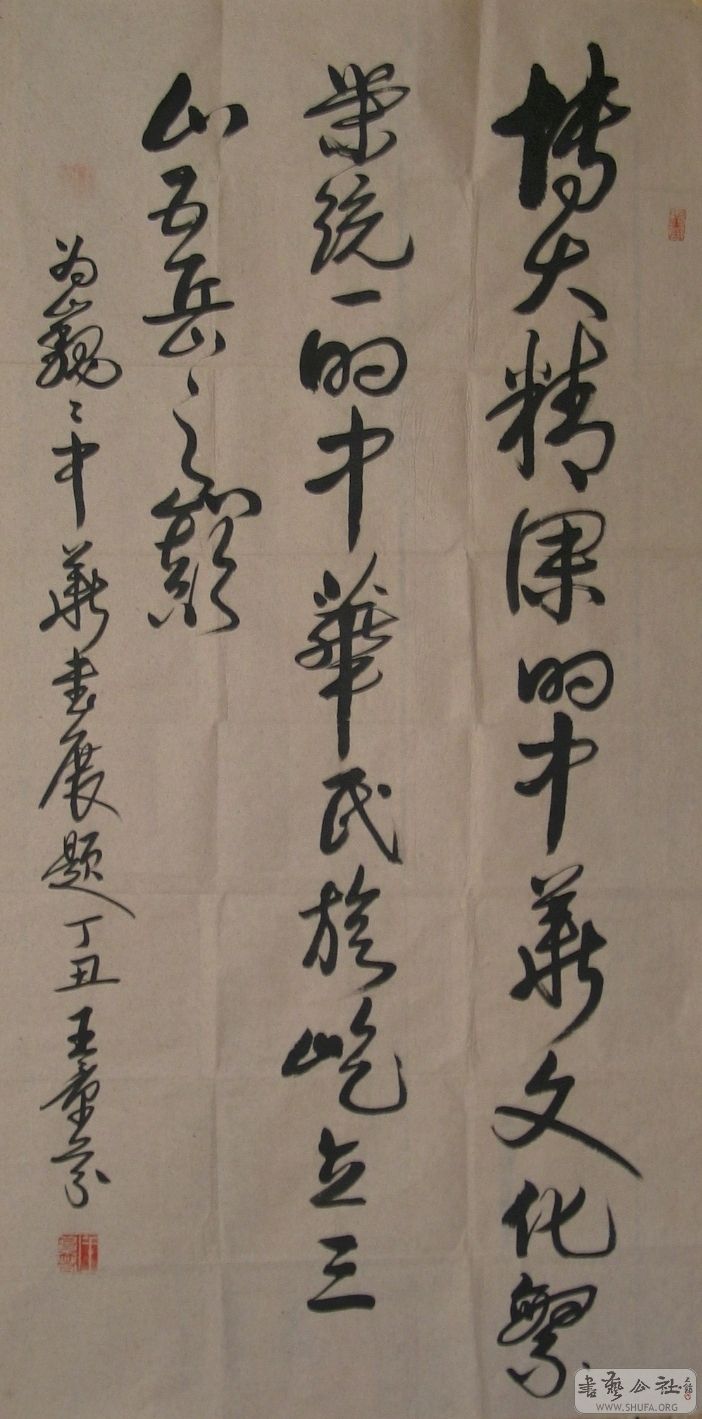 博大精深的中華文化繁
榮统一的中華民族屹立三
山五岳之巅
为巍々中華書展题丁丑王章
書藝公社
WWW.SHUFA.ORG